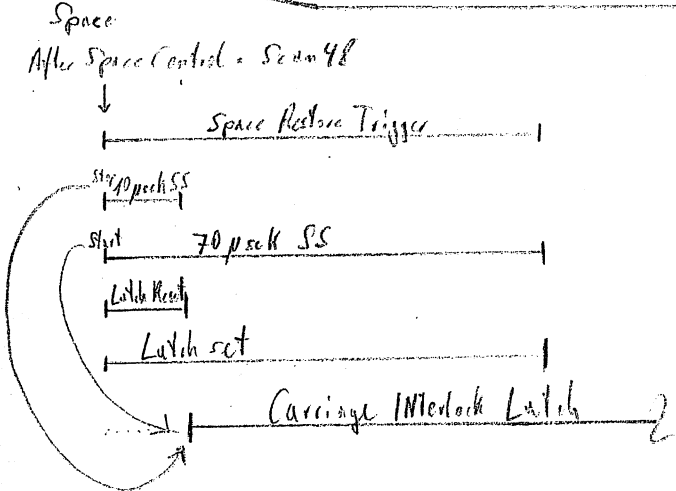 Space
After Space Control . Scan 48
Space Restore Trigger
10 µsek SS
Start 70 µsek SS
Latch Reset
Latch set
Carriage INterlock Latch